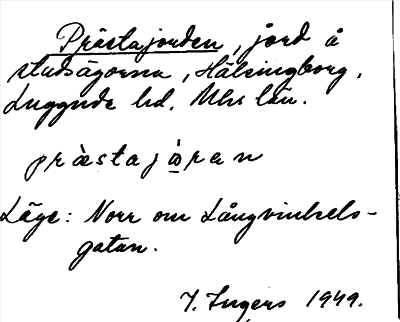 Prästajorden, jord å
stadsägorna, Hälsingborg,
Luggude hd. Mhs län.
prästajọ̀ren
Läge: Norr om Långvinkels-
gatan.
I. Ingers 1949.